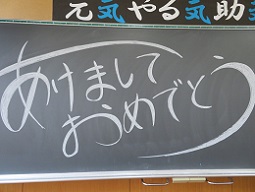 元気やる気助
あけまして
おめでとう